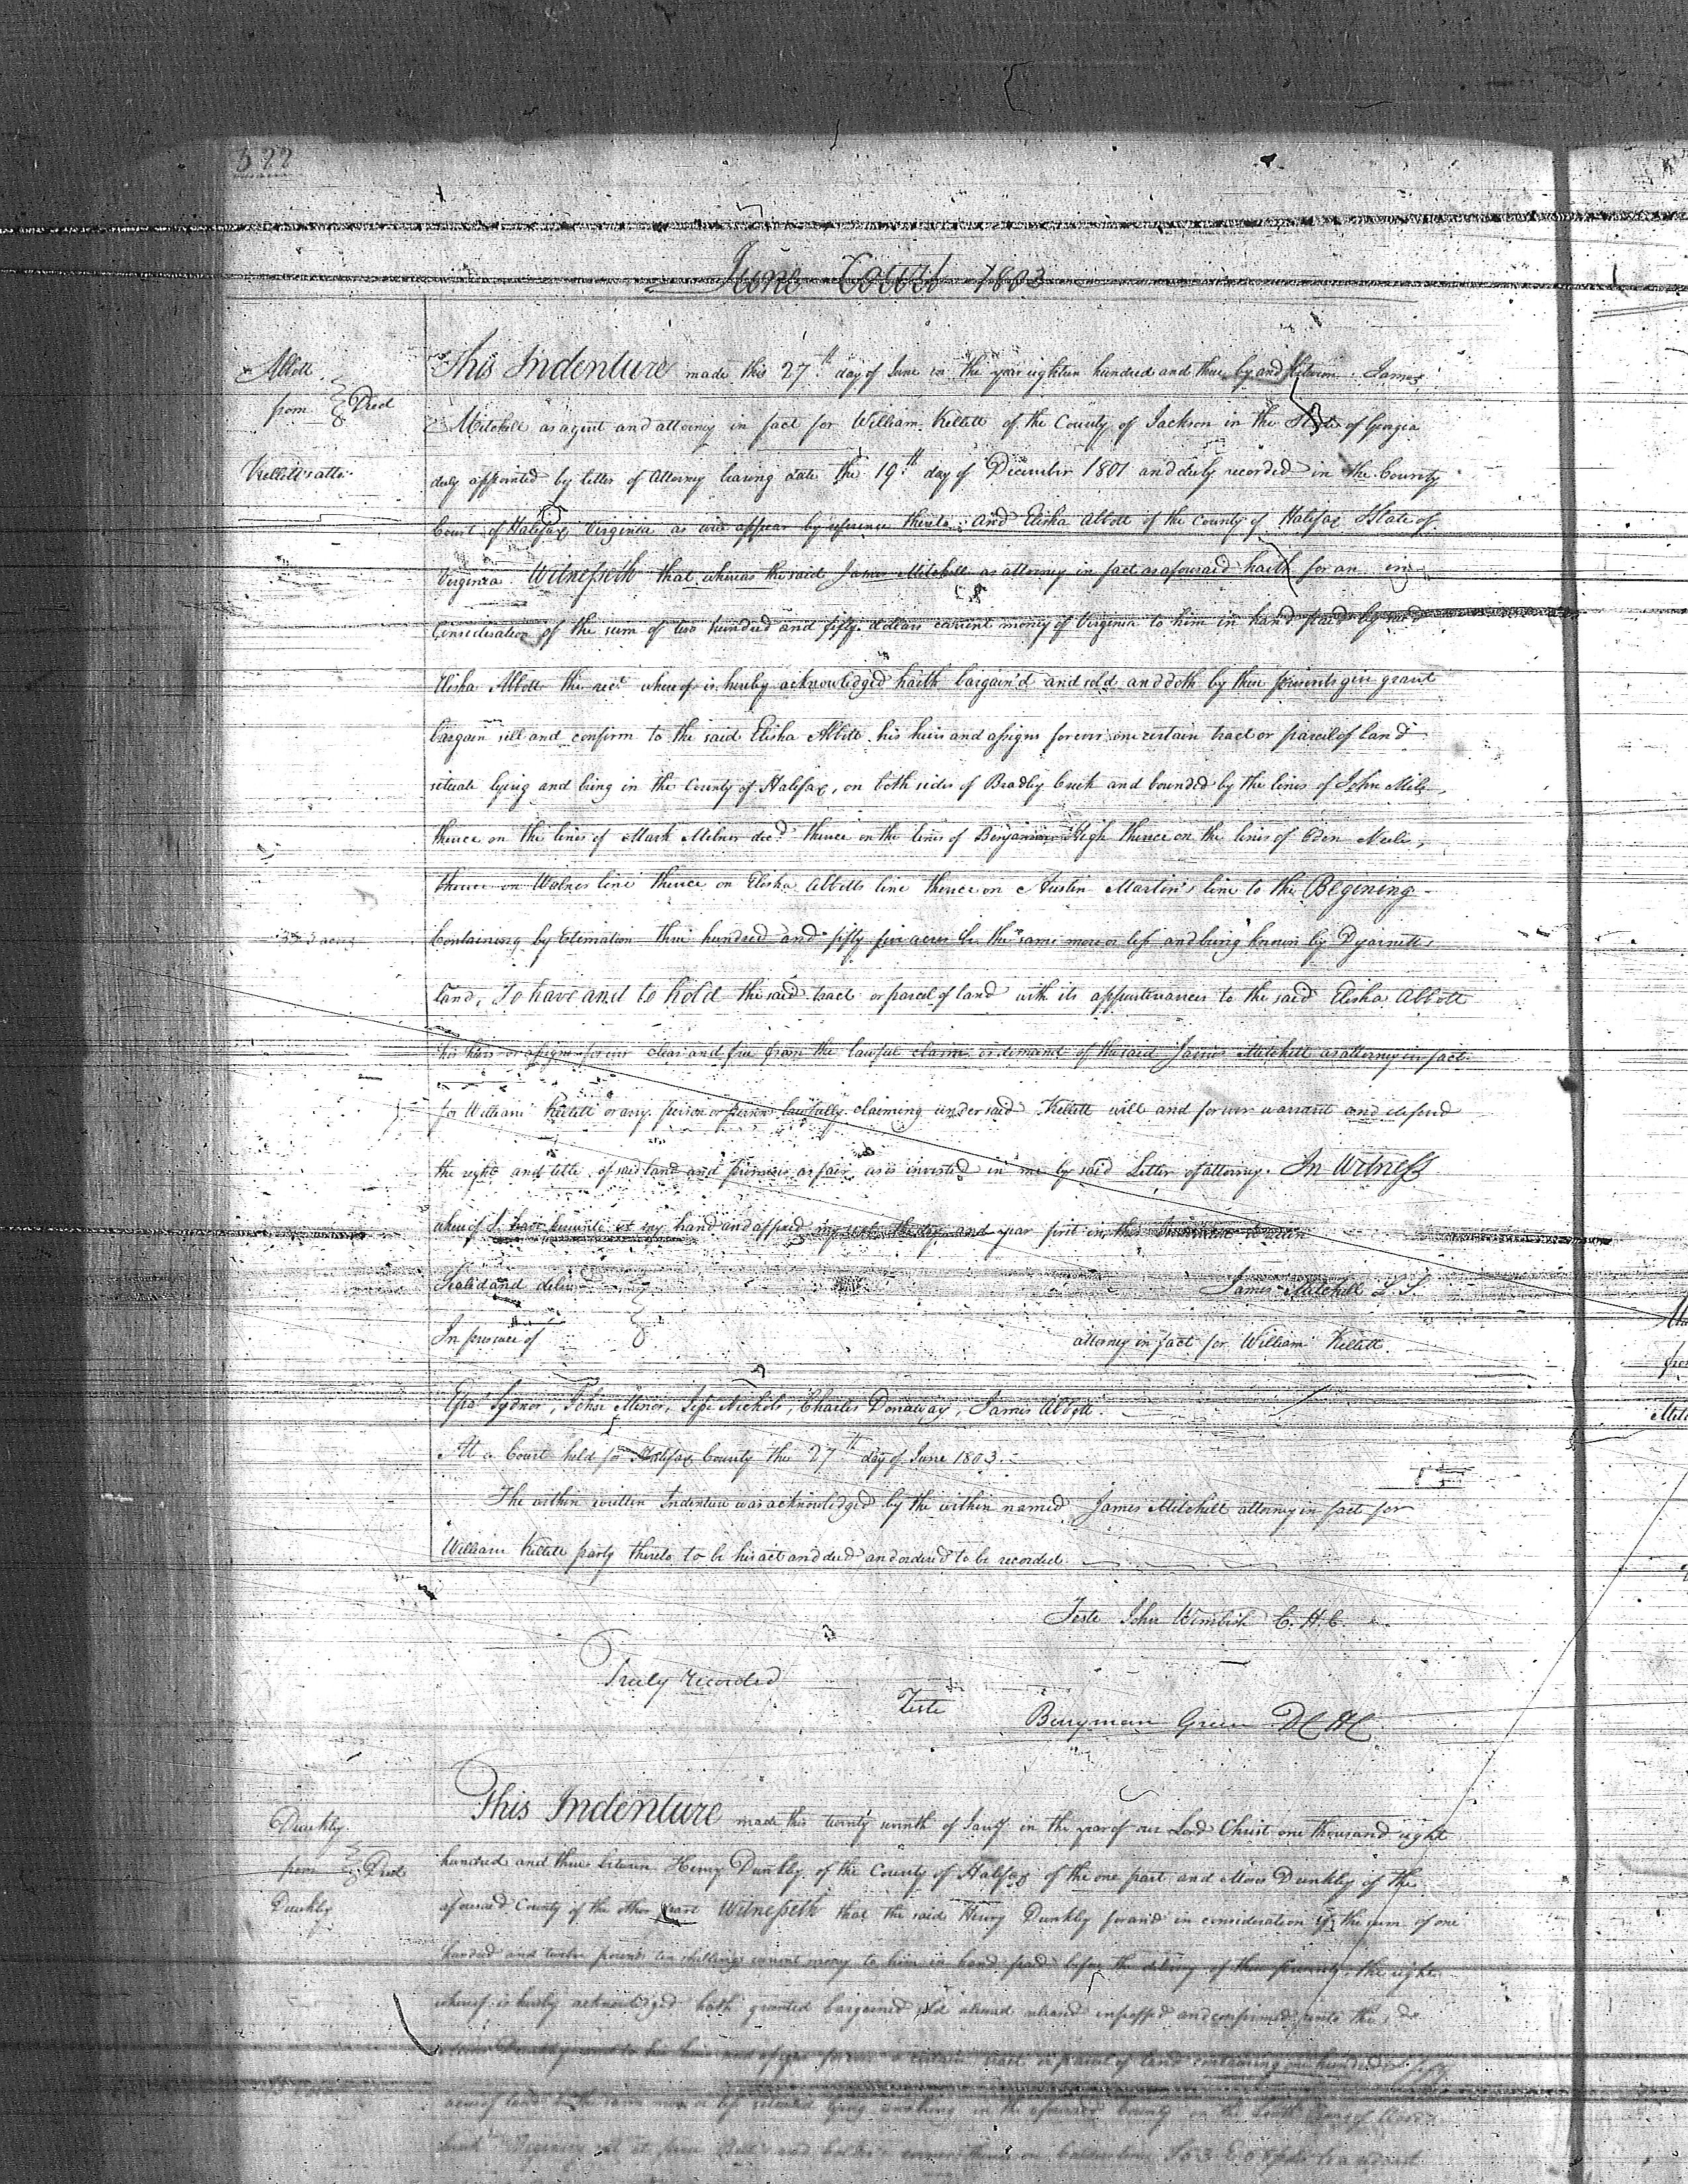 522
June Court 1803
Abbott
from } Deed
Kelletts atto.
This Indenture made this 27th day of June in the year eighteen hundred and three by and between James
Mitchell as agent and attorney in fact for William Kellett of the County of Jackson in the State of Georgia
duly appointed by letter of Attorney bearing date the 19th day of December 1801 and duly recorded in the County
Court of Halifax Virginia as will appear by reference thereto and Elisha Abbott of the County of Halifax State of
Virginia Witnesseth that whereas the said James Mitchell as attorney in fact as aforesaid haith for an in
Consideration of the sum of two hundred and fifty dollars current money of Virginia to him in hand paid by
Elisha Abbott the rect. whereof is hereby acknowledged haith bargain'd and sold and doth by these presents give grant
bargain sell and confirm to the said Elisha Abbott his heirs and assigns forever one certain tract or parcel of land
situate lying and being in the County of Halifax, on both sides of Bradley Creek and bounded by the lines of John
thence on the lines of Mark Milner decd. thence on the lines of Benjamin High thence on the lines of Eden
thence on line thence on Elisha Abbotts line thence on Austin Martin's line to the Begining
355 acres
Containing by Estimation three hundred and fifty five acres be the same more or less and being known by
Land, To have and to hold the said tract or parcel of land with its appurtenances to the said Elisha Abbott
his heirs or assigns forever clear and free from the lawful claim or demand of the said James Mitchell as attorney in fact
for William Kellett or any person or persons lawfully claiming under said Kellett will and forever warrant and defend
the right and title of said land and premises as fair as is invested in me by said Letter of attorney. In Witness
whereof I have hereunto set my hand and affixed my seal the day and year first in this written
Sealed and deliverd }
James Mitchell L.S.
In presence of
attorney in fact for William Kellett
Epa. Sydnor, John Minor, Nichols, Charles Donaway, James Abbott.
At a Court held for Halifax County the 27th day of June 1803.
The within written Indenture was acknowledged by the within named James Mitchell attorney in fact for
William Kellett party thereto to be his act and deed and ordered to be recorded
Teste John Wimbish C.H.C.
Truly recorded
Teste Berryman Green DCHC
Dunkley
from } Deed
Dunkley
This Indenture made this twenty ninth of Jany in the year of our Lord Christ one thousand eight
hundred and three between Henry Dunkley of the County of Halifax of the one part and Moses Dunkley of the
aforesaid County of the other part Witnesseth that the said Henry Dunkley for and in consideration of the sum of one
hundred and twelve pounds ten shillings current money to him in hand paid before the delivery of these presents, the right
whereof is hereby acknowledged hath granted bargained sold aliened released enfeoffed and confirmed unto the sd.
Moses Dunkley and to his heirs and assigns forever a certain tract or parcel of land containing one hundred & fifty
acres of land be the same more or less situated lying and being in the aforesaid County on the